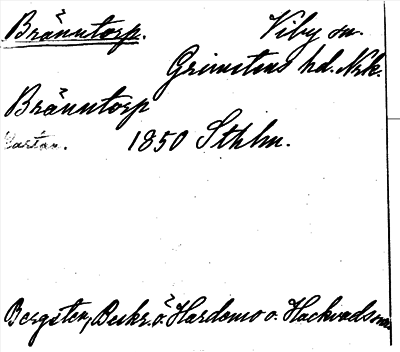 Bränntorp. Viby sn.
Grimstens hd. Nrk.
Bränntorp
Kartan. 1850 Sthlm.
Bergsten, Beskr. ö. Hardemo o. Hackvads snr